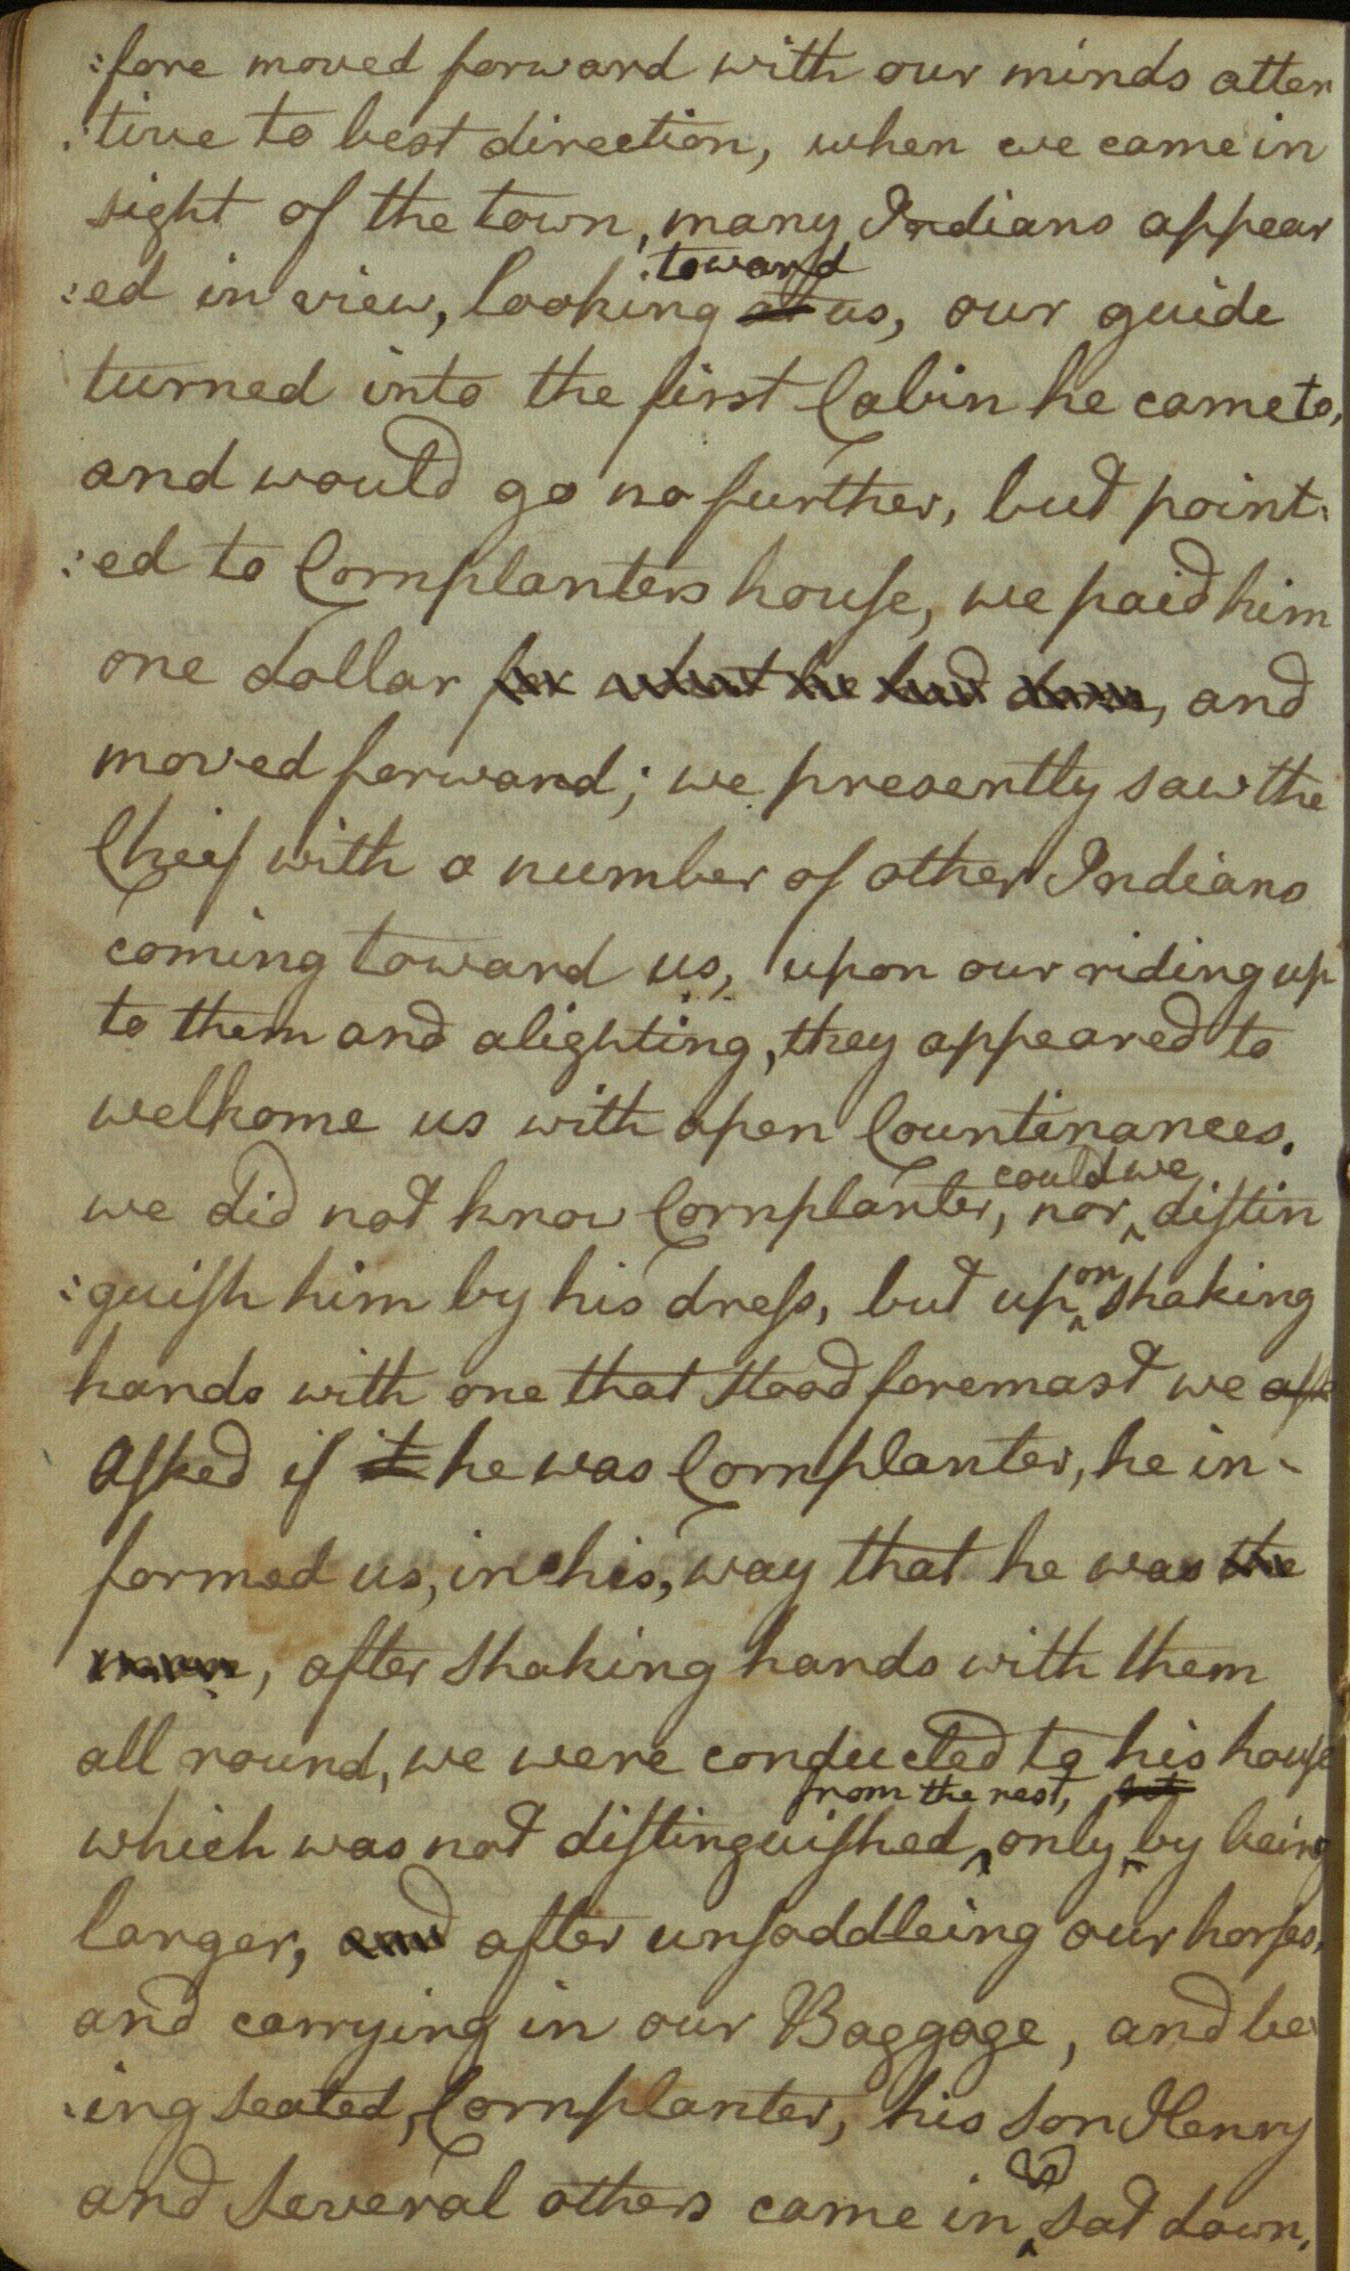 :fore moved forward with our minds atten
:tive to best direction, when we came in
sight of the town, many Indians appear
toward
:ed in view, looking at us, our guide
turned into the first Cabin he came to,
and would go no further, but point:
:ed to Cornplanters house, we paid him
one dollar for what he had done, and
moved forward; we presently saw the
Chief with a number of other Indians
coming toward us, upon our riding up
to them and alighting, they appeared to
welkome us with open Countinances.
could we
we did not know Cornplanter, nor ^ distin
:guish him by his dress, but up^on shaking
hands with one that stood foremost we aske
Asked if it he was Cornplanter, he in-
formed us, in his, way that he was the
man, after shaking hands with them
all round, we were conducted to his house
from the rest, but
which was not distinguished ^ only ^ by being
larger, and after unsaddleing our horses,
and carrying in our Baggage, and be
:ing seated, Cornplanter, his son Henry
&
and several others came in ^ sat down,